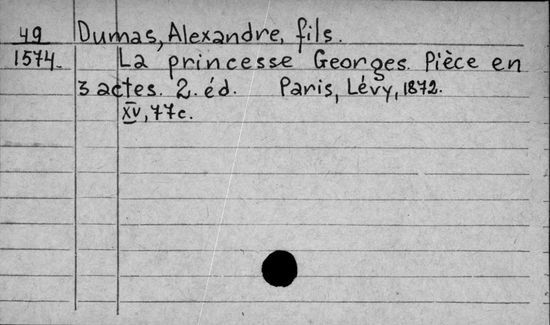 49 Dumas, Alexandre, fils.
1574. La princesse Georges. Pièce en
3 actes. 2. éd. Paris, Lévy, 1872.
XV, 77c.